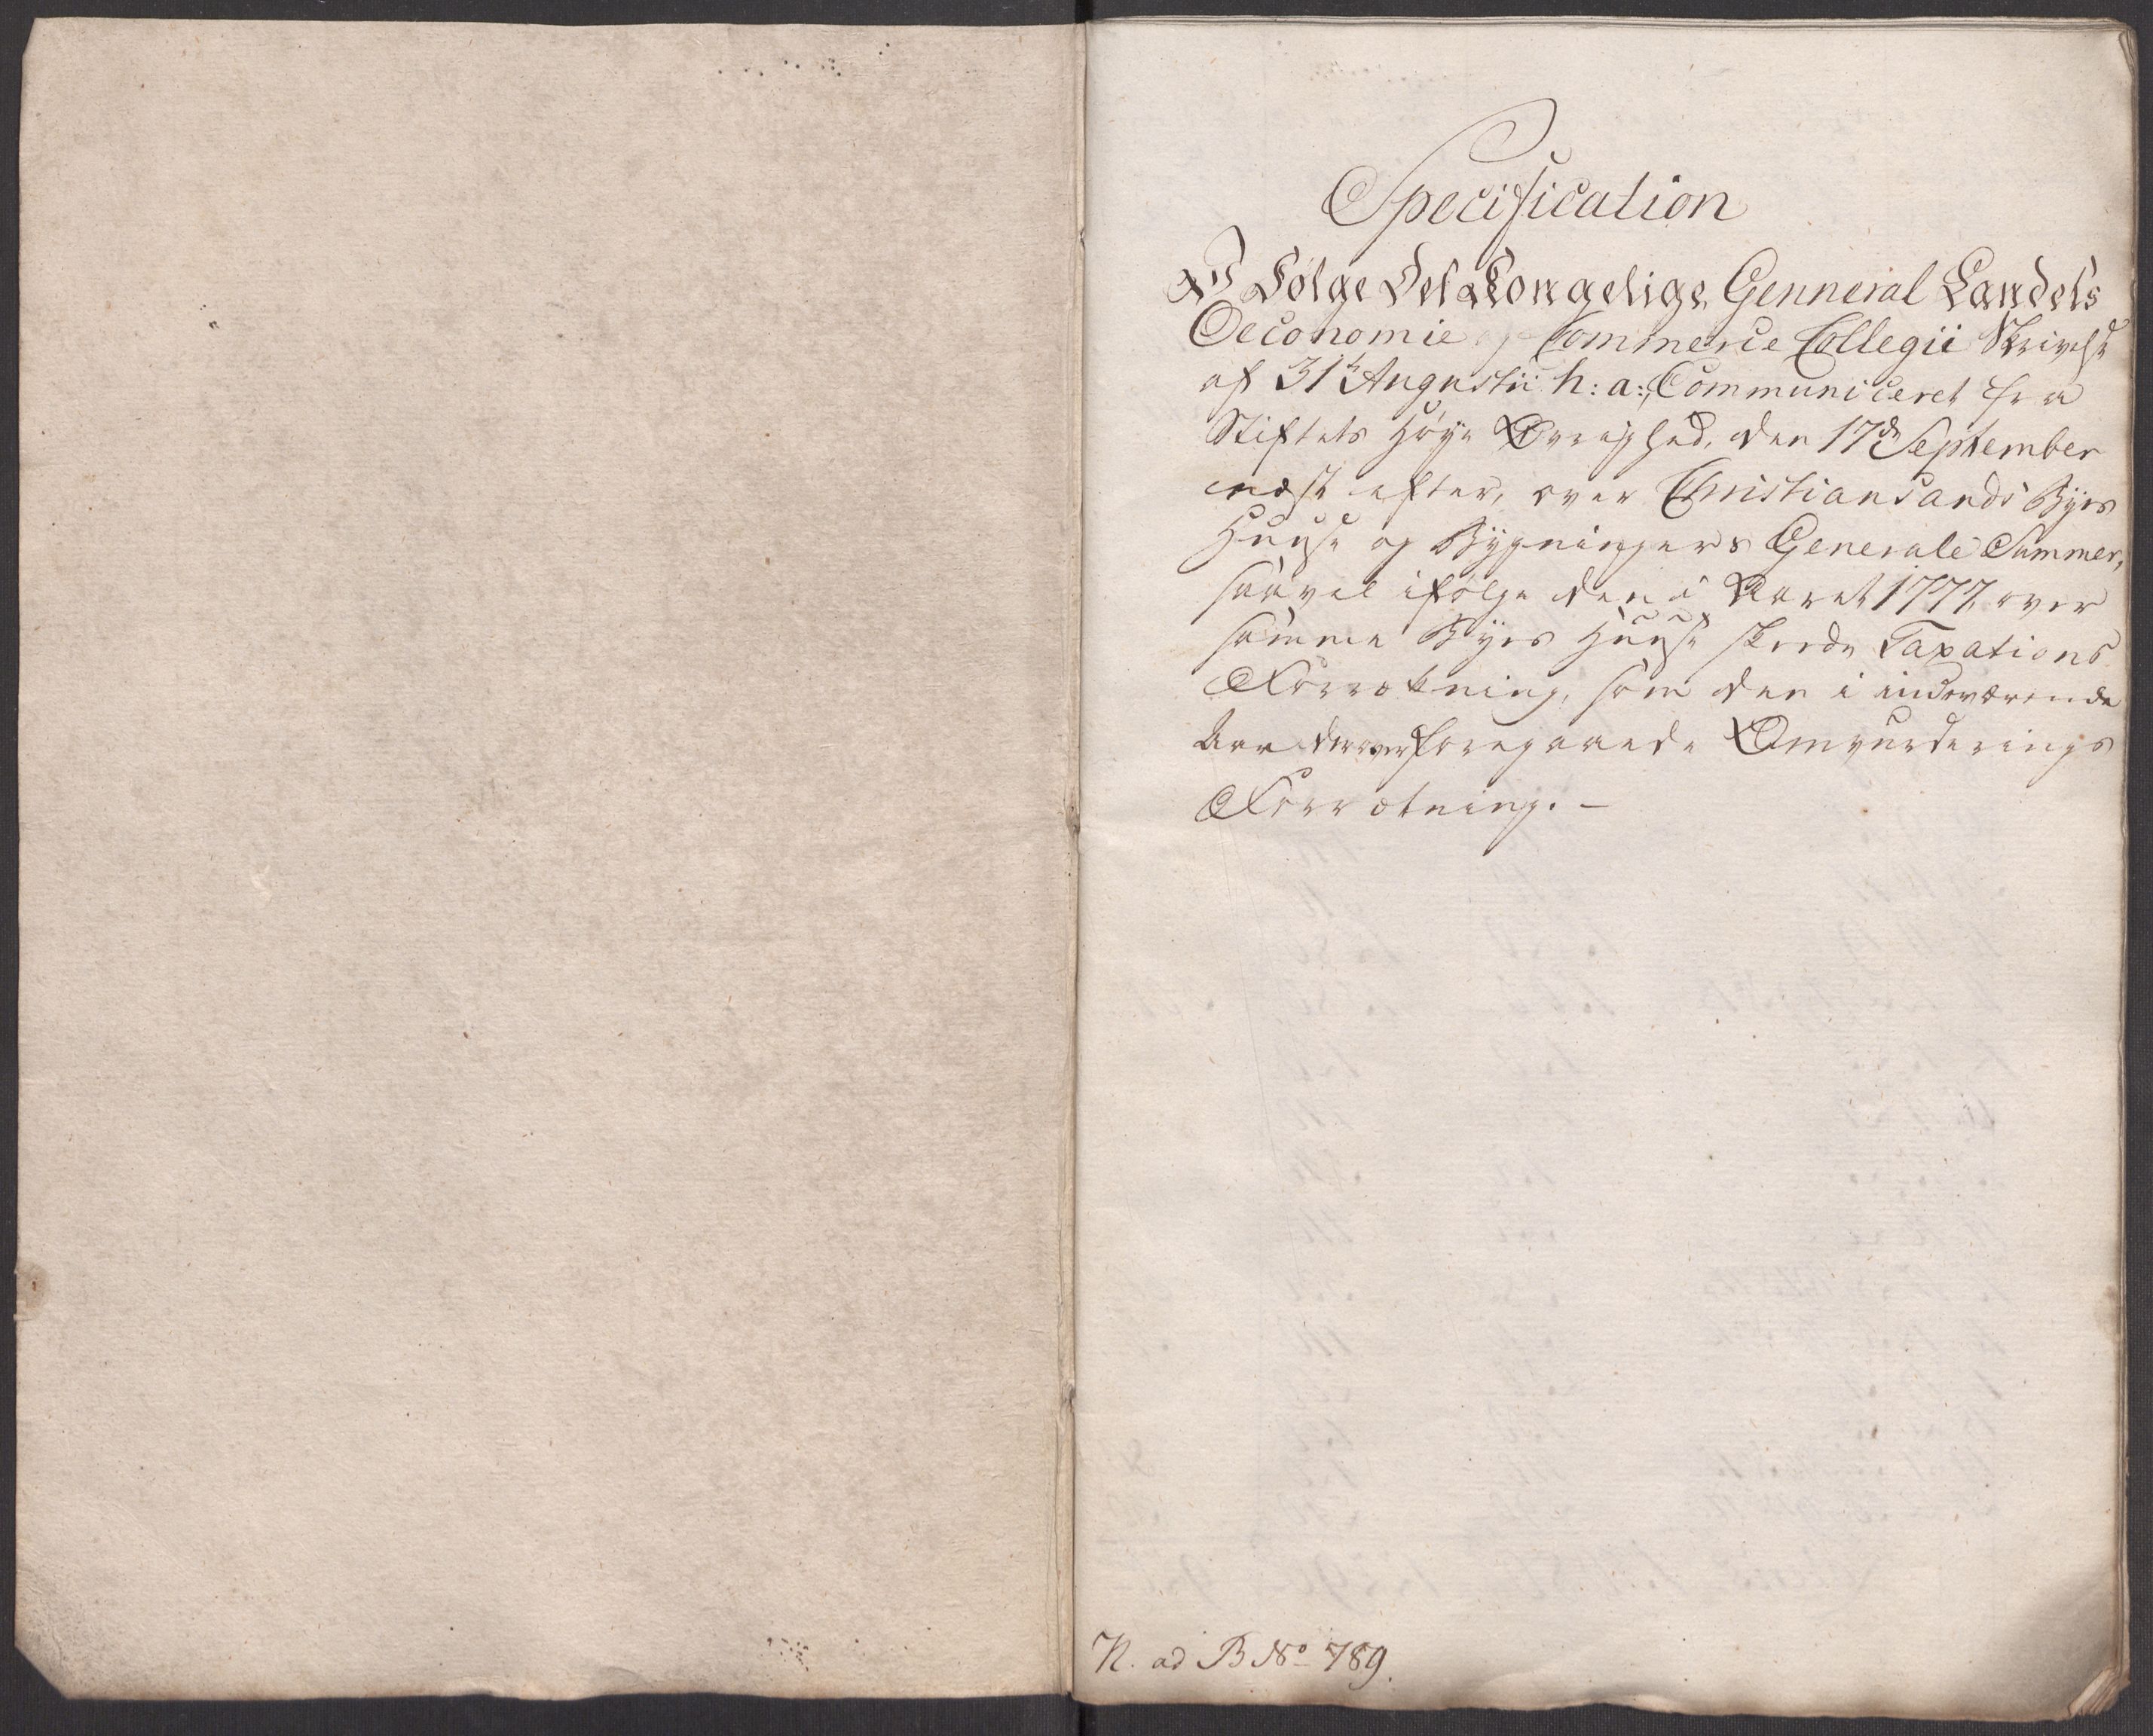 Specification
I Følge Det Kongelige Genneral Landets
Oeconomie og Commerce Collegii Skrivelse
af 31te Augustii h: a:, Communiceret fra
Stiftets Høye Øvrighed, den 17de September
næst efter, over Christiansands Byes
Huuse og Bygningers Generale Summer,
saavel ifølge den i Aaret 1777 over
samme Byes Huuse skeede Taxations
Forretning, som den i indeværende
Aar derover foregaaede Omvurderings
Forretning. –
N. ad B No 789.